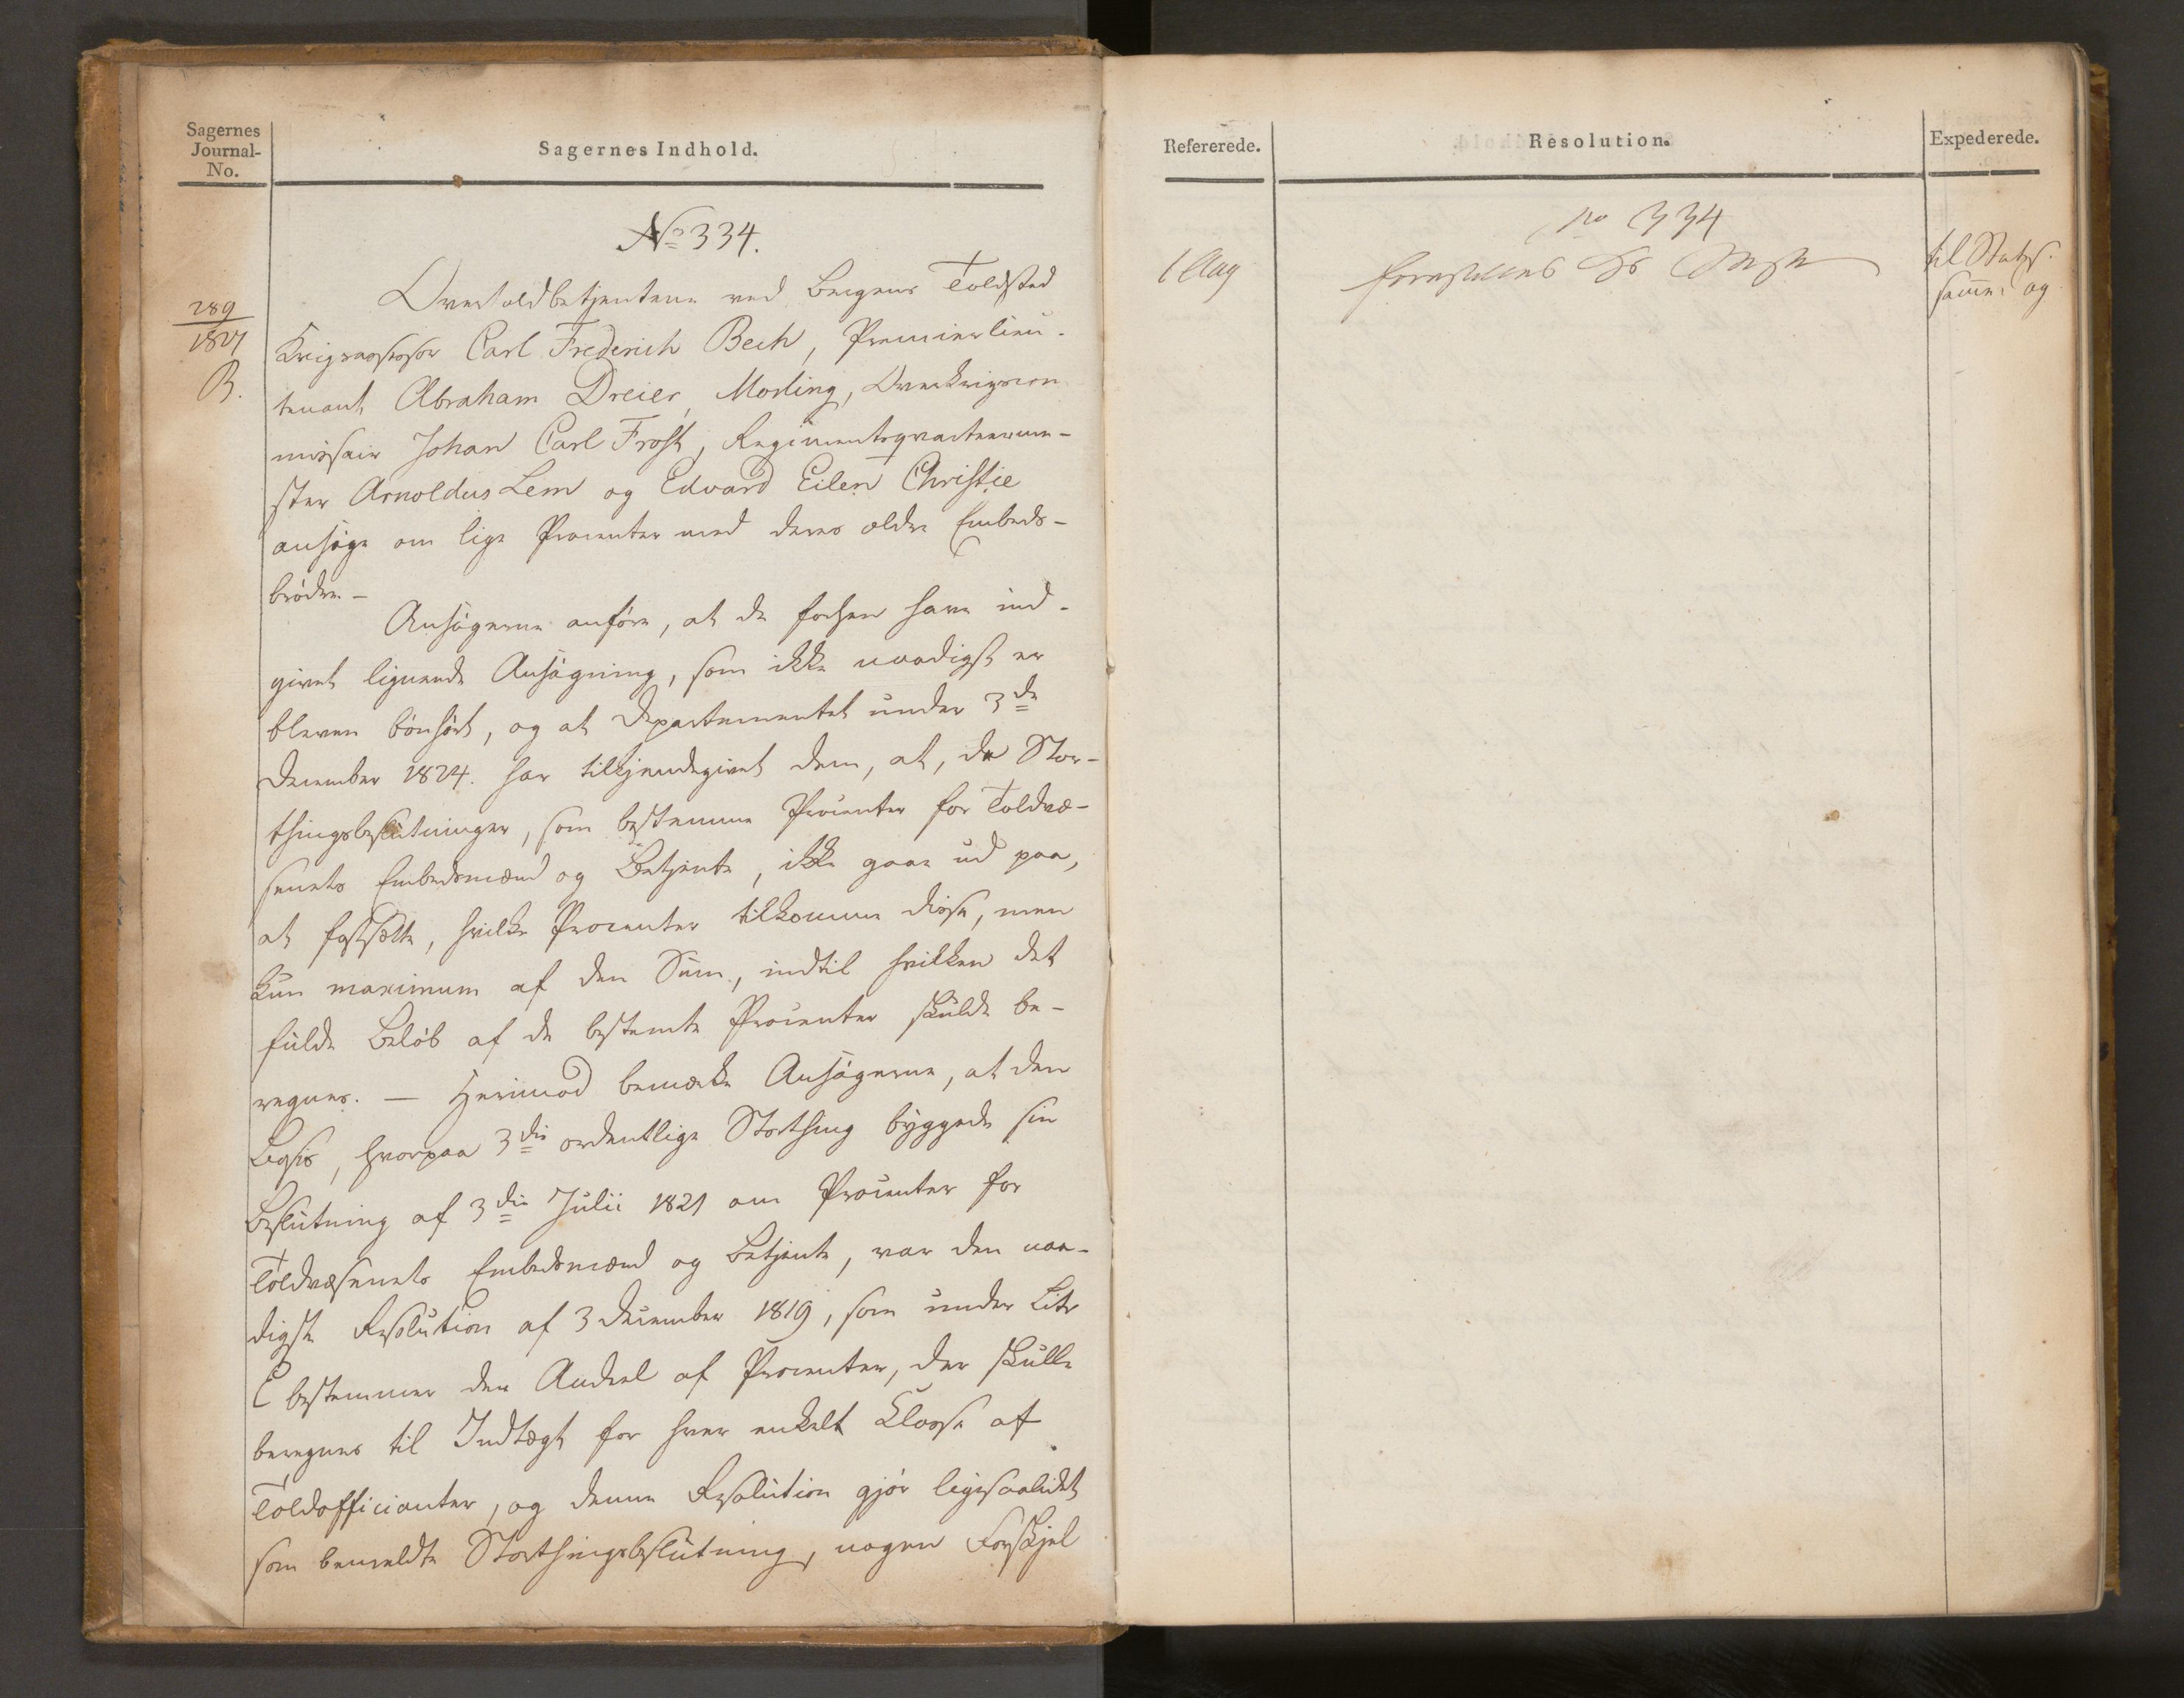 Sagernes
Journal-
No.
Sagernes Indhold.
No 334.
289
1827
B.
Overtoldbetjentene ved Bergens Toldsted
Krigsassessor Carl Frederich Bech, Premierlieu-
tenant Abraham Dreier, Morting, Overkrigscom
missair Johan Carl Frost, Regimentsqvarteerme-
ster Arnoldus Lem og Edvard Eilert Christie
ansøge om lige Procenter med deres ældre Embeds-
brødre. -
Ansøgerne anføre, at de forhen have ind-
givet lignende Ansøgning, som ikke naadigst er
bleven bønhørt, og at Departementet under 3de
December 1824. har tilkjendegivet dem, at, da Stor-
thingsbeslutninger, som bestemme Procenter for Toldvæ-
senets Embedsmænd og Betjente, ikke gaae ud paa,
at fastsætte, hvilke Procenter tilkomme disse, men
kun maximum af den Sum, indtil hvilken det
fulde Beløb af de bestemte Procenter skulde be-
regnes. - Herimod bemærke Ansøgerne, at den
Basis, hvorpaa 3die ordentlige Storthing byggede sin
Beslutning af 3die Julii 1821 om Procenter for
Toldvæsenets Embedsmænd og Betjente, var den naa-
digste Resolution af 3 December 1819, som under Litr
C bestemmer den Andeel af Procenter, der skulle
beregnes til Indtægt for hver enkelt Classe af
Toldofficianter, og denne Resolution gjør ligesaalidet
som bemeldte Storthingsbeslutning, nogen Forskjel
Refererede.
Resolution.
Expederede.
no 334
1 Aug
forestilles
til Stats.
samme og